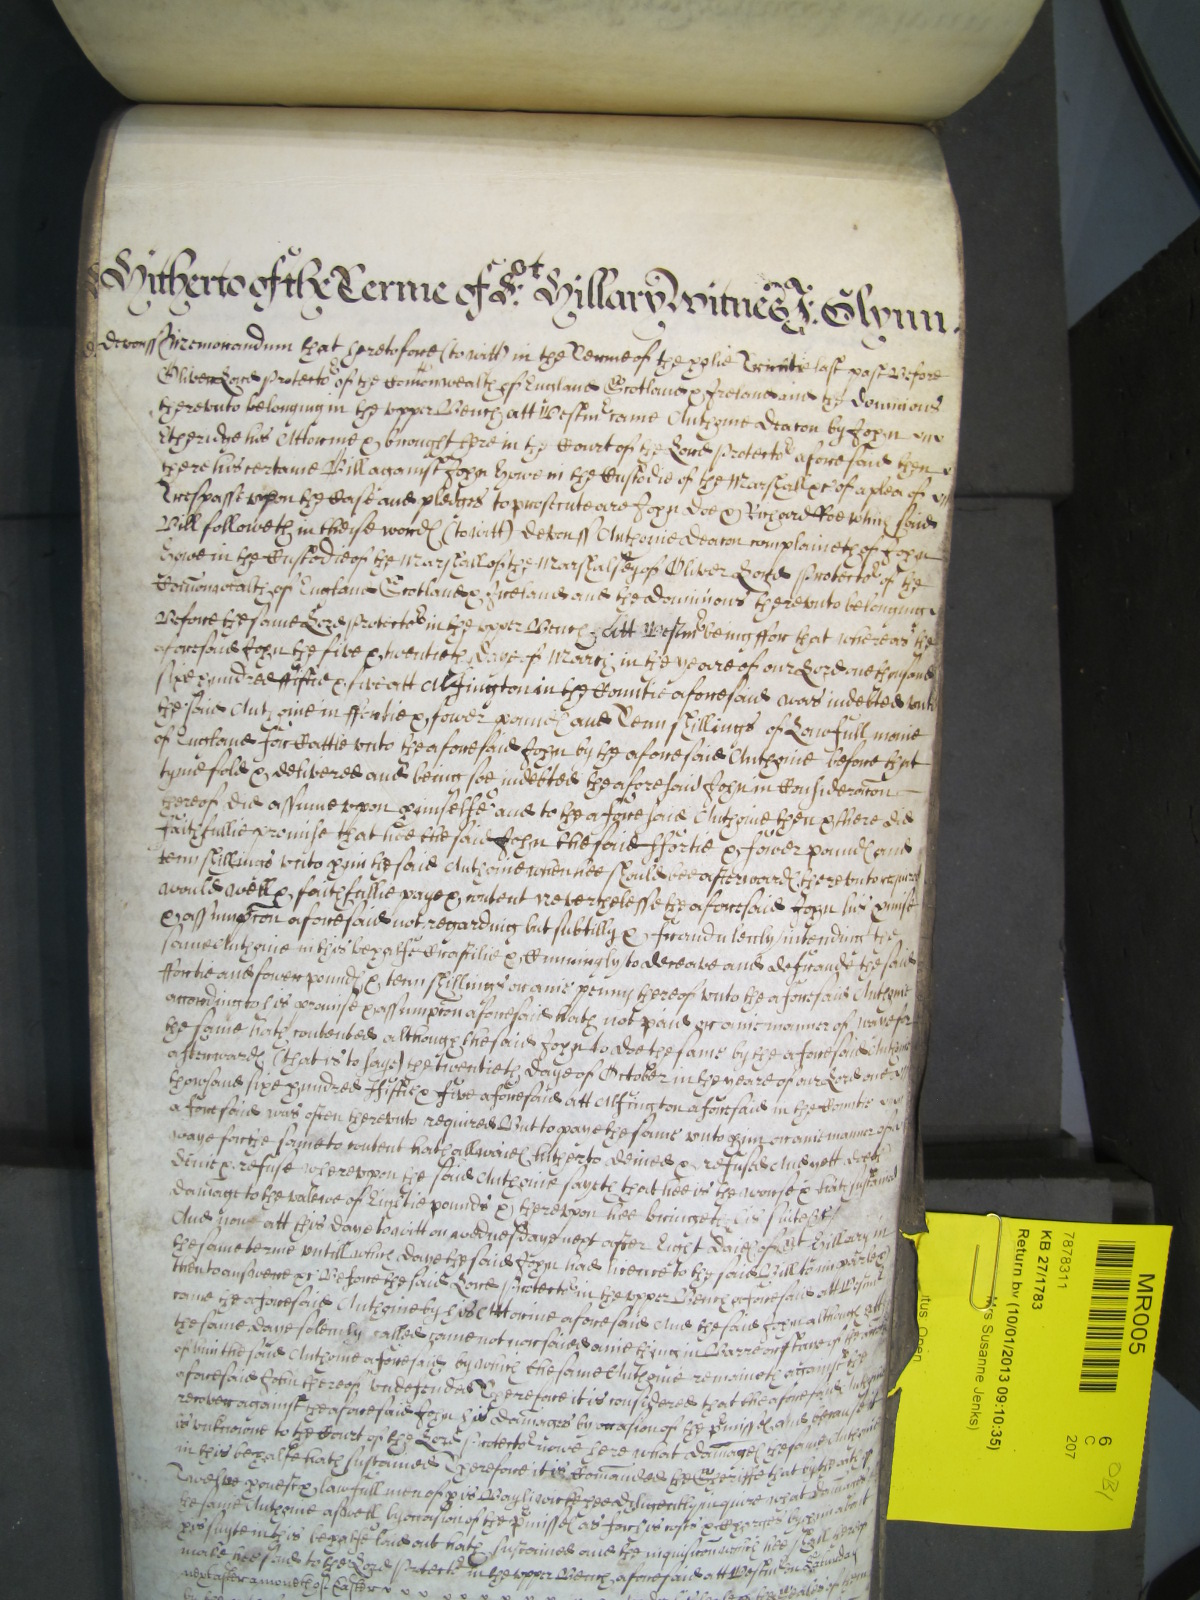 Hitherto of the Terme of St Hillary Witnes J. Glynn.
devonss Memorandum that heretofore (to witt) in the Terme of the holie Trinitie last past Before
Oliver Lord Protector of the Comonwealth of England Scotland & Ireland and the dominions
therevnto belonging in the vpper Bench att Westmr came Anthonie Deacon by John
Etheridge his Attornie & brought here in the Court of the Lord Protector aforesaid then
there his certaine Bill against John Howe in the Custodie of the Marshall &c of a plea of
Trespasse vpon the Case and pledges to prosecute are John Doe & Richard Roe which said
Bill followeth in theise words (to witt) Devonss Anthonie Deacon complaineth of John
Howe in the Custodie of the Marshall of the Marshalsey of Oliver Lord Protector of the
Comonwealth of England Scotland & Ireland and the dominions therevnto belonging
Before the same Lord Protector in the vpper Bench att Westmr being ffor that whereas the
aforesaid John the five & twentieth daye of March in the yeare of our Lord one thousand
sixe hundred ffiftie & five att Alfington in the Countie aforesaid was indebted vnto
the said Anthonie in ffortie & fower pounds and Tenn shillings of Lawfull monie
of England for Cattle vnto the aforesaid John by the aforesaid Anthonie before that
tyme sold & delivered and being soe indebted the aforesaid John in Consideracon
thereof did assume vpon himselfe and to the aforesaid Anthonie then & there did
faithfullie promise that hee the said John the said ffortie & fower pounds and
tenn shillings vnto him the said Anthonie when hee should bee afterwards therevnto required
would well & faithfullie paye & content Neverthelesse the aforesaid John his promise
& assumpcon aforesaid not regarding but subtilly & fraudulently intending the
same Anthonie in this behalfe Craftilie & Cunningly to deceave and defraude the said
ffortie and fower pounds & tenn shillings or anie penny thereof vnto the aforesaid Anthonie
according to his promise & assumpton aforesaid hath not paid or anie manner of waye for
the same hath contented although the said John to doe the same by the aforesaid Anthonie
afterwards (that is to saye) the twentieth daye of October in the yeare of our Lord one
thowsand sixe hundred ffiftie & five aforesaid att Alfington aforesaid in the Countie
aforesaid was often therevnto required But to paye the same vnto him or anie manner of
waye for the same to content hath allwaies hitherto denied & refused And yett doth
denie & refuse wherevpon the said Anthonie sayeth that hee is the worse & hath sustained
damage to the valewe of pounds & therevpon hee bringeth his suite &c
And nowe att this daye to witt on wednesdaye next after Eight daies of St Hillary in
the same terme vntill which daye the said John had licence to the said Bill to imparle &
then to answere &c Before the said Lord Protector in the vpper Bench aforesaid att Westmr
came the aforesaid Anthonie by his Attornie aforesaid And the said John although
the same daye solemly called came not nor said anie thing in Barre or
of him the said Anthonie aforesaid by which the same Anthonie remaineth against the
aforesaid John thereof vndefended Therefore it is considered that the aforesaid Anthonie
recover against the aforesaid John his damages by occasion of the premisses And because it
is vnknowne to the Court of the Lord Protector nowe here what damages the same Anthonie
in this behalfe hath sustained Therefore it is Comanded the Sheriffe that by the oath of
Twelve honest & lawfull men of his Bayliwicke hee diligently inquire what damages
the same Anthonie aswell by occasion of the premisses as for his costs & charges by him about
his suyte in this behalfe laid out hath sustained and the inquisicon which hee shall thereof
make hee send to the Lord Protector in the vpper Bench aforesaid att Westmr on
next after a moneth of Easter
MR005
6
C
207
7878311
KB 27/1783
Return by (10/01/2013 09:10:35)
Mrs Susanne Jenks)